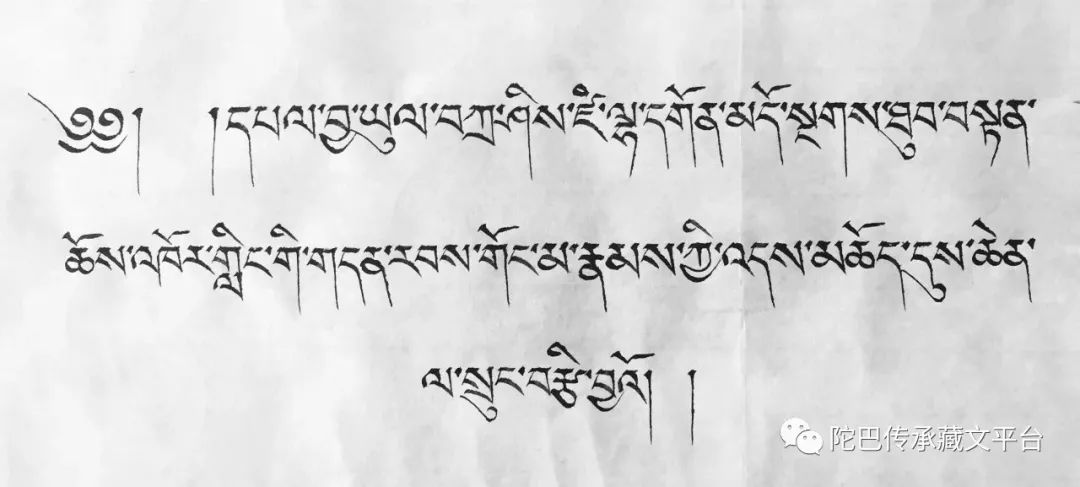 ༄༅། །དཔལ་བྱ་ཡུལ་བཀྲ་ཤིས་ཛཾ་ལྷ་དགོན་མདོ་སྔགས་ཐུབ་བསྟན་
ཆོས་འཁོར་གླིང་གི་གདན་རབས་གོང་མ་རྣམས་ཀྱི་འདས་མཆོད་དུས་ཆེན་
ལ་སྲུང་བརྩི་བྱའོ། །
陀巴传承藏文平台